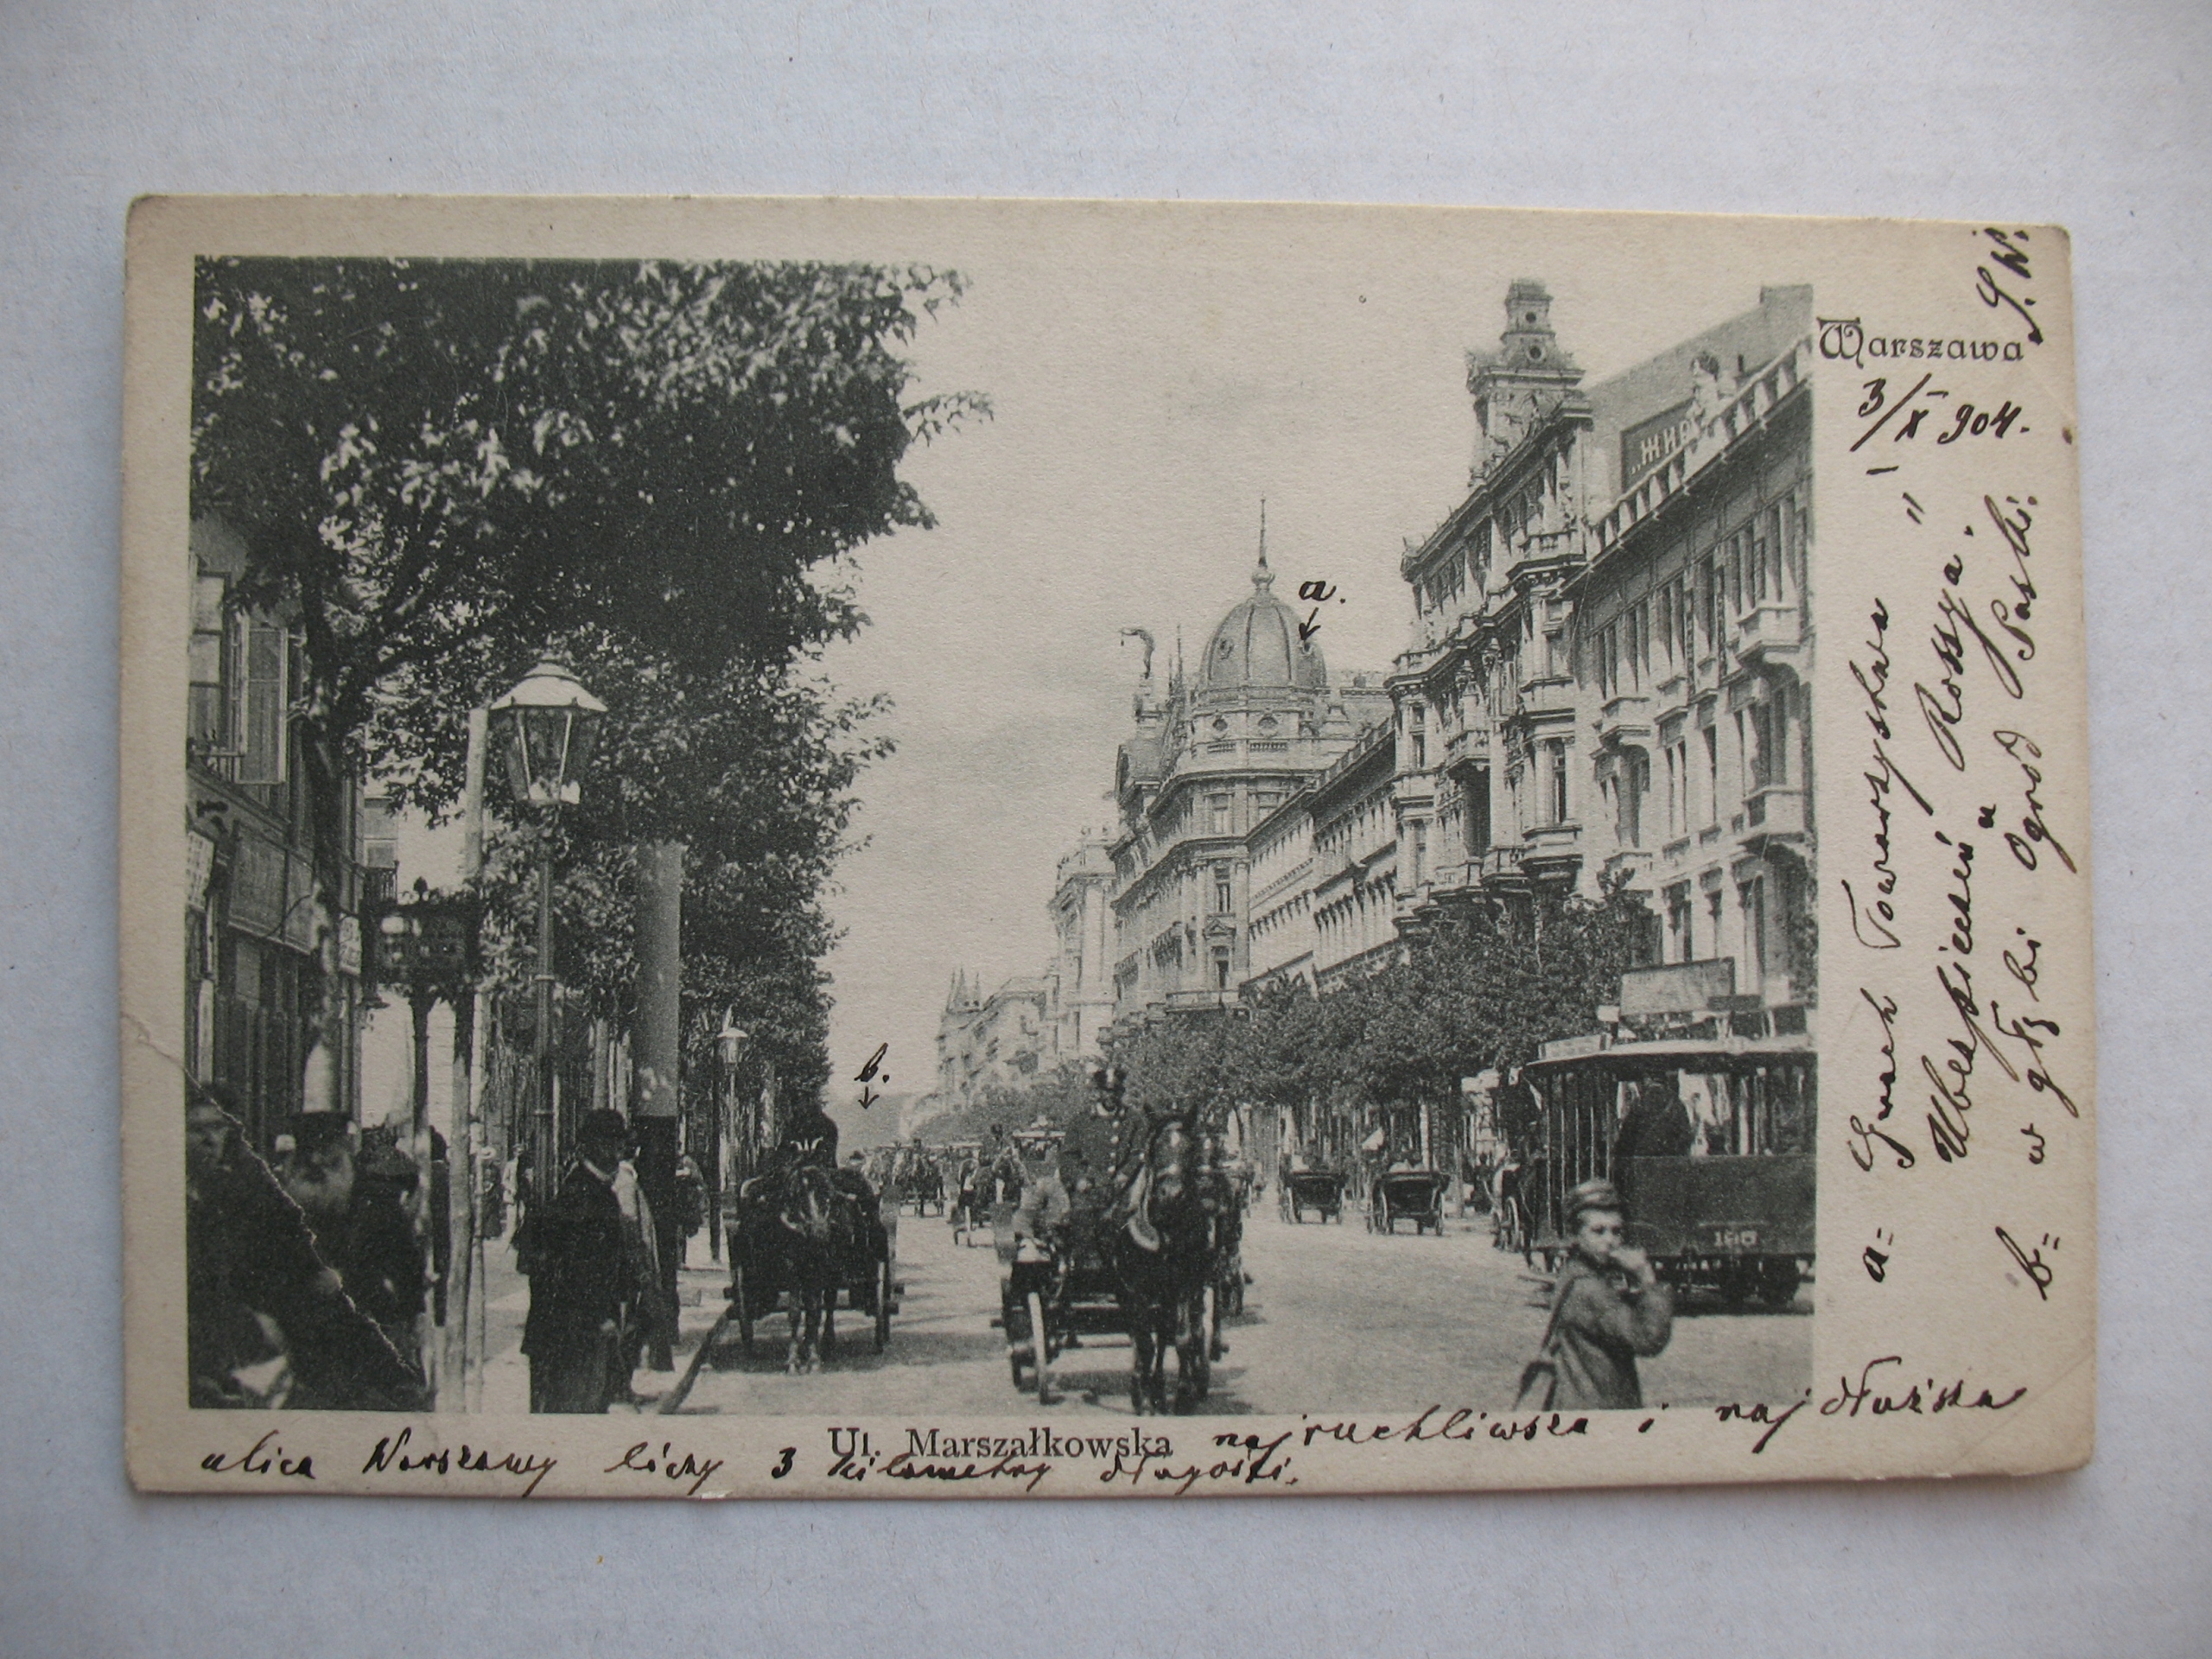 S.W.
Warszawa
3/X 904.
„ЖИ
a.
b.
a= Gmach Towarzystwa „
Ubezpieczeń „ Rossya.
b= w głębi Ogród Saski.
165
Ul. Marszałkowska najruchliwsza i najdłuższa
ulica Warszawy liczy 3 kilometry długości.